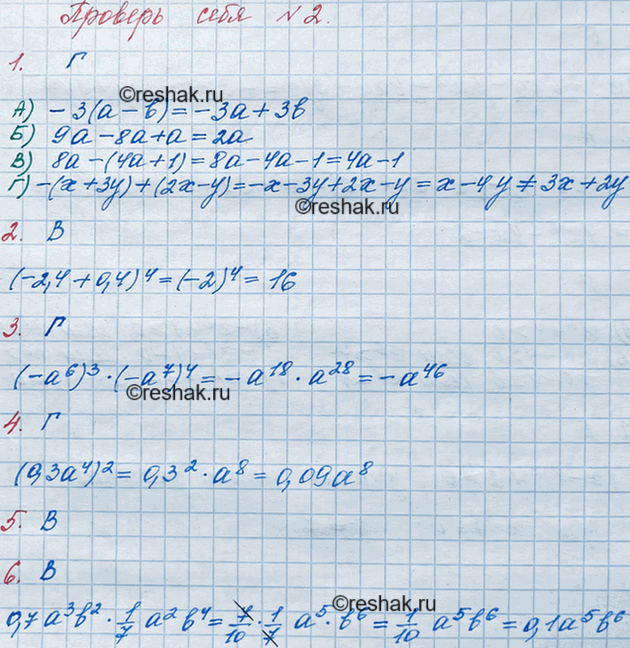 Проверь себя №2.
1. Г
©reshak.ru
А) -3(a-b)=-3a+3b
Б) 9a-8a+a=2a
В) 8a-(4a+1)=8a-4a-1=4a-1
Г) -(x+3y)+(2x-y)=-x-3y+2x-y=x-4y≠3x+2y
©reshak.ru
2. В
(-2,4+0,4)⁴=(-2)⁴=16
3. Г
(-a⁶)³·(-a⁷)⁴=-a¹⁸·a²⁸=-a⁴⁶
©reshak.ru
4. Г
(0,3a⁴)²=0,3²·a⁸=0,09a⁸
5. В
6. В
0,7a³b²·1/7 a²b⁴=7/10·1/7 a⁵·b⁶=1/10 a⁵b⁶=0,1a⁵b⁶